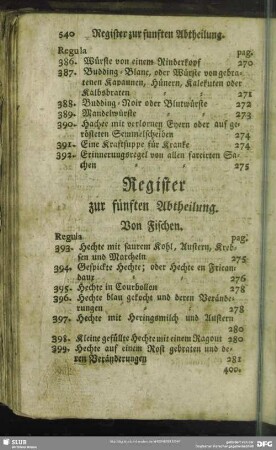 540 Register zur fünften Abtheilung.
Regula pag.
386. Würste von einem Rinderkopf 270
387. Budding-Blanc, oder Würste von gebra-
tenen Kapaunen, Hünern, Kalekuten oder
Kalbsbraten 271
388. Budding-Noir oder Blutwürste 272
389. Mandelwürste 273
390. Hachee mit verlornen Eyern oder auf ge-
rösteten Semmelscheiben 274
391. Eine Kraftsuppe für Kranke 274
392. Erinnerungsregel von allen farcirten Sa-
chen 275
Register
zur fünften Abtheilung.
Von Fischen.
Regula pag.
393. Hechte mit saurem Kohl, Austern, Kreb-
sen und Morcheln 275
394. Gespickte Hechte; oder Hechte en Frican-
daux 276
395. Hechte in Courbollon 278
396. Hechte blau gekocht und deren Verände-
rungen 278
397. Hechte mit Heringsmilch und Austern
280
398. Kleine gefüllte Hechte mit einem Ragout 280
399. Hechte auf einem Rost gebraten und de-
ren Veränderungen 281
400.
SLUB
DFG